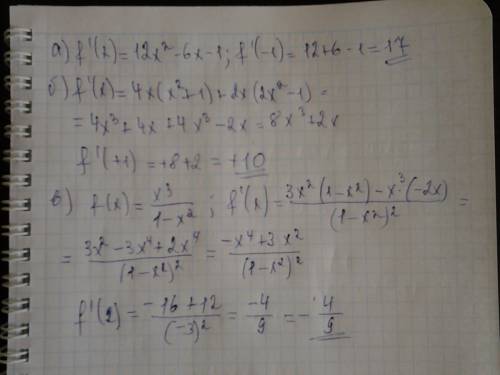 а) f'(x)=12x²-6x-1; f'(-1)=12+6-1=17
б) f'(x)=4x(x²+1)+2x(2x²-1)=
=4x³+4x+4x³-2x=8x³+2x
f'(+1)=+8+2=+10
в) f(x)=x³/(1-x²); f'(x)=(3x²(1-x²)-x³·(-2x))/(1-x²)²=
=(3x²-3x⁴+2x⁴)/(1-x²)²=(-x⁴+3x²)/(1-x²)²
f'(2)=(-16+12)/(-3)²=-4/9=-4/9